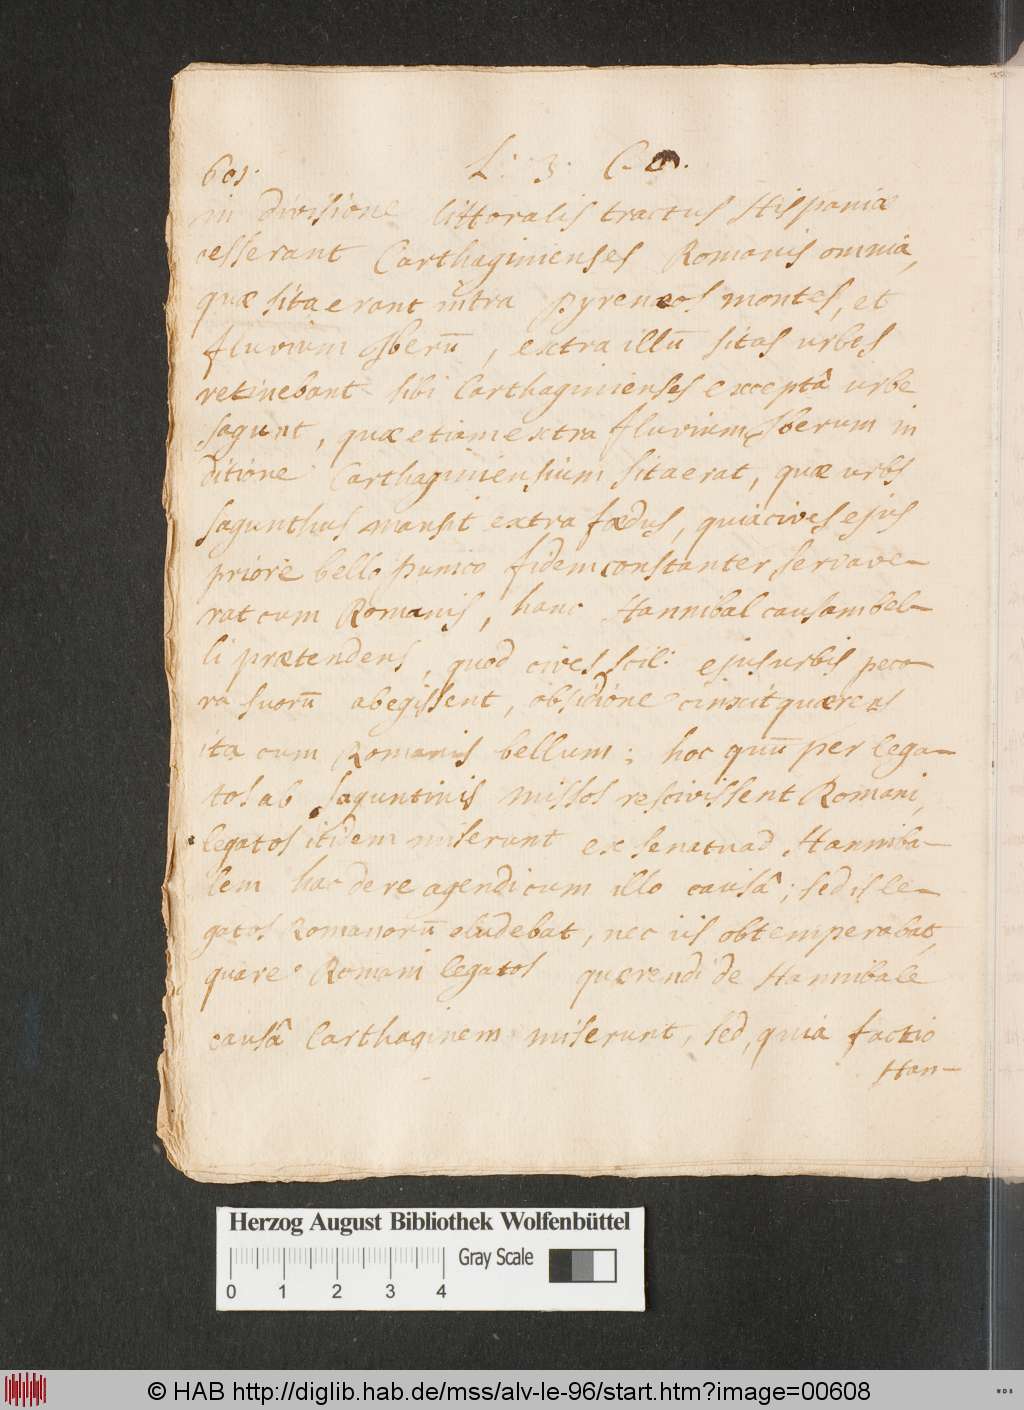 601. L: 3. C.
in divisione littoralis tractus Hispaniæ
cesserant Carthaginienses Romanis omnia,
quæ sita erant intra Pyrenæos montes, et
fluvium Iberū, extra illū sitas urbes
retinebant sibi Carthaginienses exceptâ urbe
sagunt, quæ etiam extra fluvium Iberum in
ditione Carthaginiensium sita erat, quæ urbs
sagunthus mansit extra fœdus, quia cives ejus
priore bello punico fidem constanter servave-
rat cum Romanis, hanc Hannibal causam bel-
li prætendens, quod cives scil: ejus urbis peco-
ra suorū abegissent, obsidione cinxit quærens
ita cum Romanis bellum; hoc quū per lega-
tos ab saguntinis missos rescivissent Romani,
legatos itidem miserunt ex senatu ad Hanniba-
lem hac de re agendi cum illo causâ; sed is le-
gatos Romanorū eludebat, nec iis obtemperabat,
quare Romani legatos quærendi de Hannibale
causâ Carthaginem miserunt, sed, quia factio
Han-
Herzog August Bibliothek Wolfenbüttel
Gray Scale
0 1 2 3 4
© HAB http://diglib.hab.de/mss/alv-le-96/start.htm?image=00608